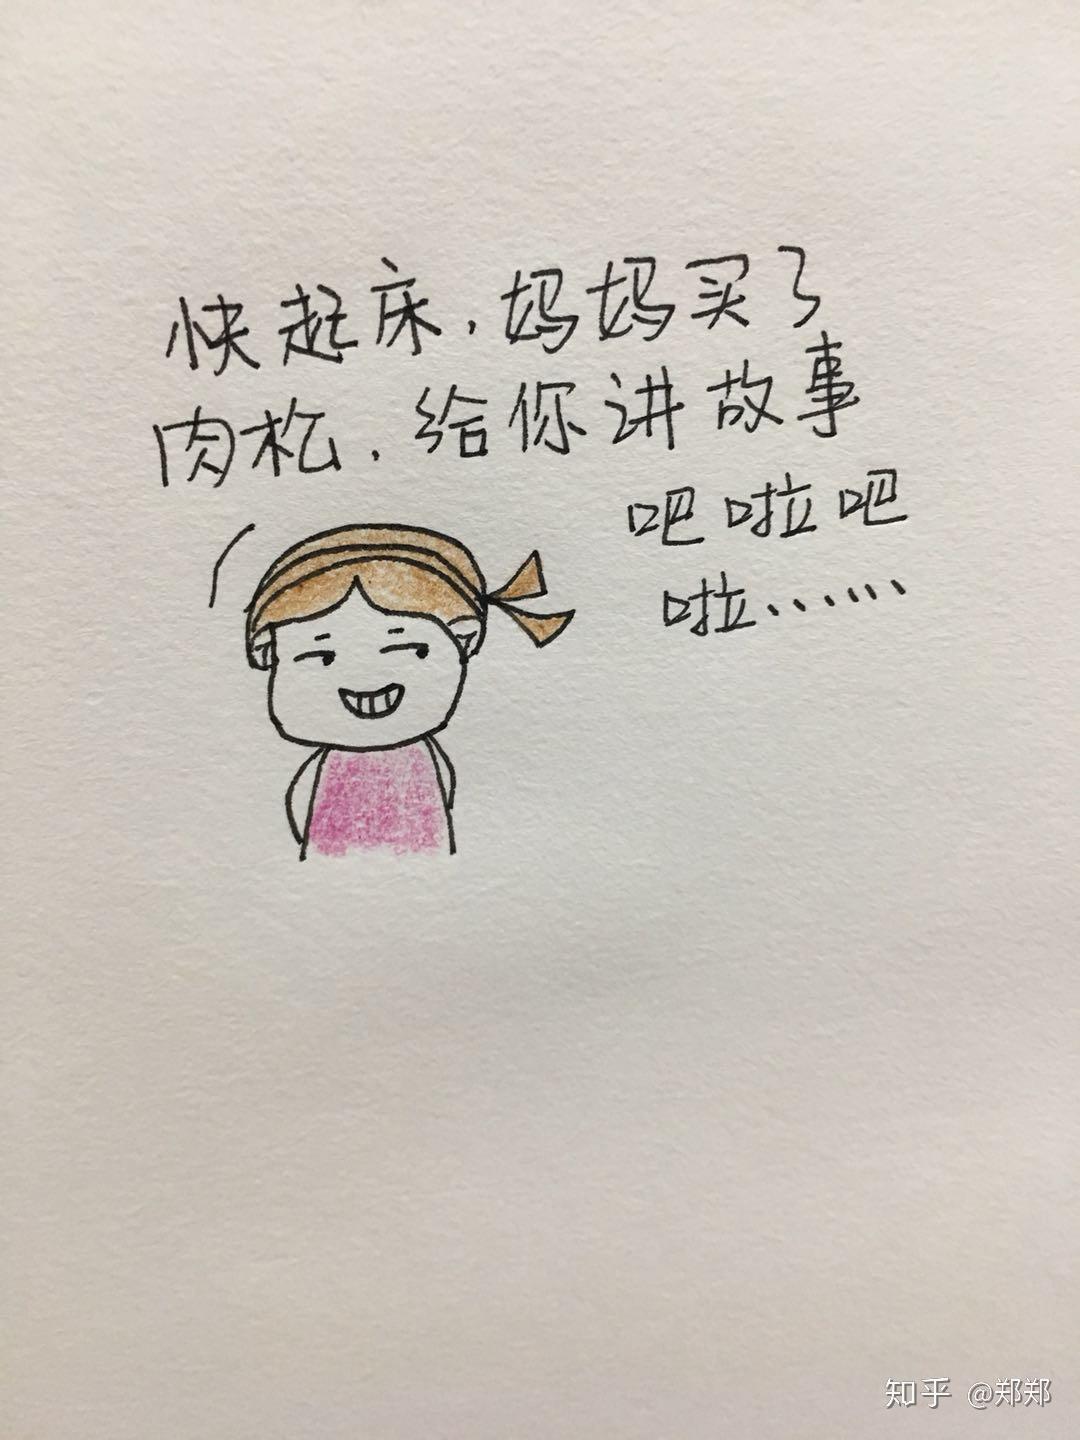 快起床,妈妈买了
肉松.给你讲故事
吧啦吧
啦……
知乎 @郑郑